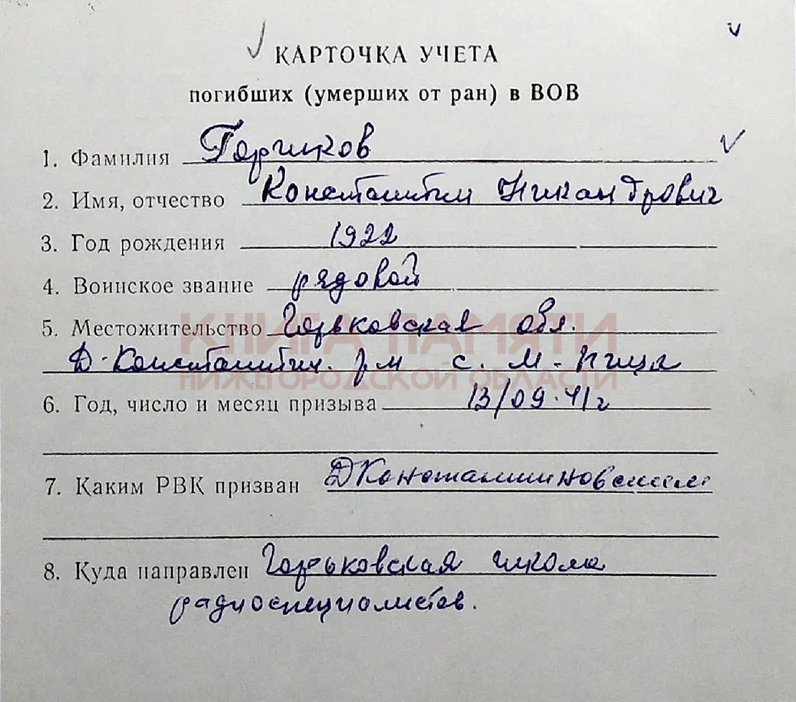 КАРТОЧКА УЧЕТА
погибших (умерших от ран) в ВОВ
1. Фамилия Горшков
2. Имя, отчество Константин Никандрович
3. Год рождения 1922
4. Воинское звание рядовой
5. Местожительство Горьковская обл.
КНИГА ПАМЯТИ
Д-Константин. р-н с. М-Пица
НИЖЕГОРОДСКОЙ ОБЛАСТИ
6. Год, число и месяц призыва 13/09.41г
7. Каким РВК призван ДКонстантиновским
8. Куда направлен Горьковская школа
радиоспециалистов.